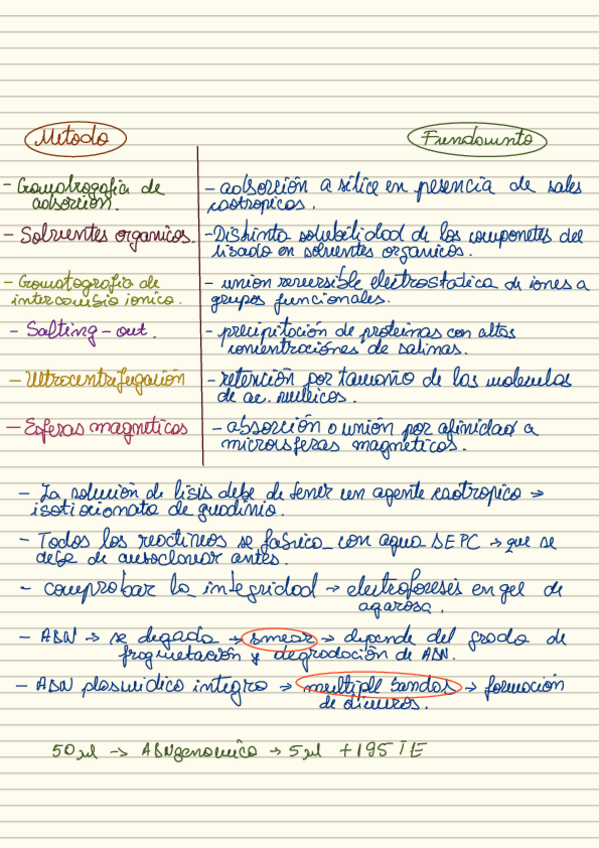 Metodo
Fundamento
- Cromatografia de adsorción.
- adsorción a silice en presencia de sales
caotropicos.
- Solventes organicos.
- Distinta solubilidad de los componetes del
lisado en solventes organicos.
- Cromatografia de
intercambio ionico.
- union reversible electrostatica de iones a
grupos funcionales.
- Salting-out.
- precipitación de proteinas con altas
concentraciónes de salinas.
- Ultracentrifugación
- retención por tamaño de las moleculas
de ac. nucleicos.
- Esferas magneticos
- absorción o unión por afinidad a
microesferas magneticos.
- La solución de lisis debe de tener un agente caotropico →
isotiocianato de guadinio.
- Todos los reactivos se fabrica con agua DEPC → que se
debe de autoclavar antes.
- comprobar la integridad → electroforesis en gel de
agarosa.
- ADN → se degada → smear → depende del grado de
fragmetación y degradación de ADN.
- ADN plasmidico integro → multiple bandas → formación
de dimeros.
50 µl → ADNgenomico → 5 µl + 195 TE